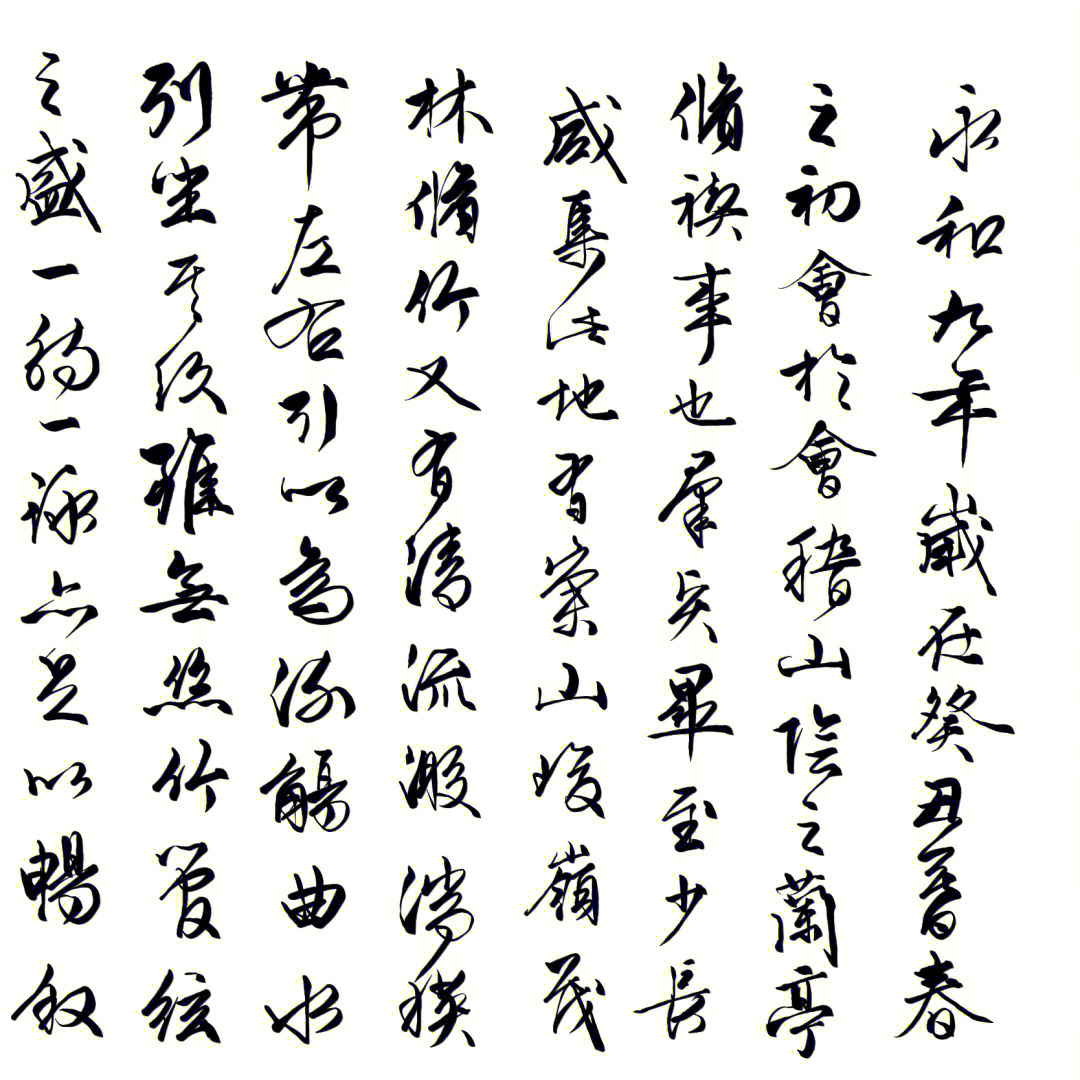 永和九年歲在癸丑暮春
之初會於會稽山陰之蘭亭
脩禊事也羣賢畢至少長
咸集此地有崇山峻嶺茂
林脩竹又有清流激湍暎
帶左右引以為流觴曲水
列坐其次雖無絲竹管絃
之盛一觴一詠亦足以暢敘